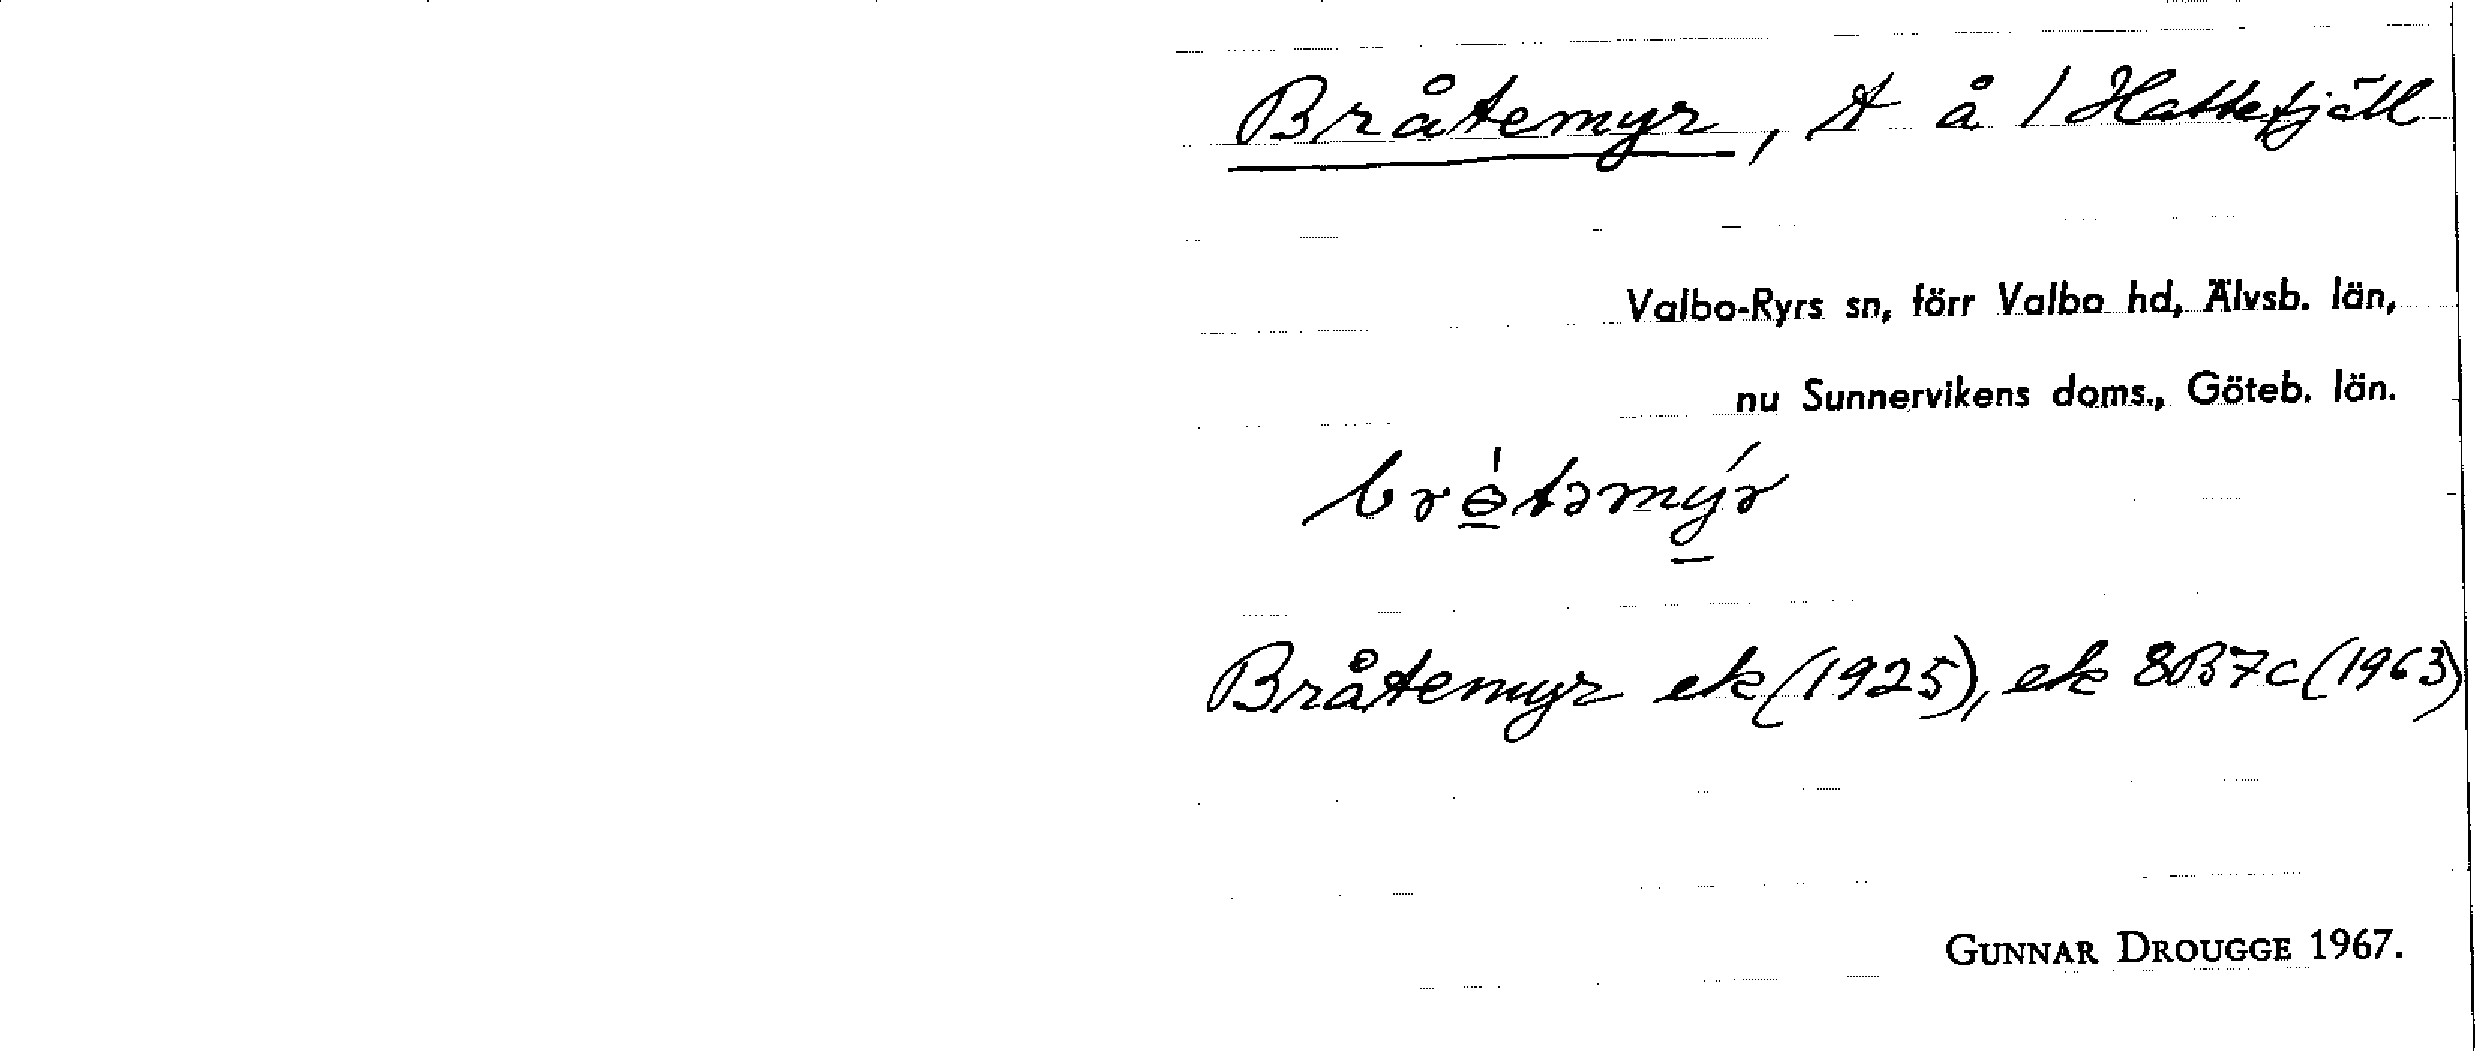 Bråtemyr, t å 1 Hattefjäll
Valbo-Ryrs sn, förr Valbo hd, Älvsb. län,
nu Sunnervikens doms., Göteb. län.
Bråtemyr ek (1925), ek 8B7c (1963)
GUNNAR DROUGGE 1967.